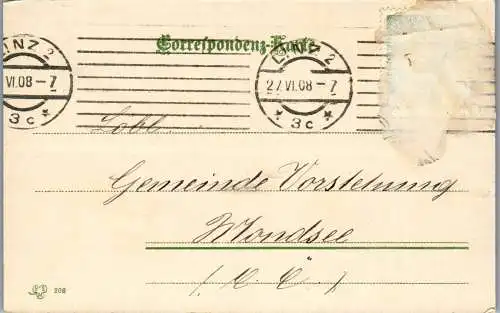 Correspondenz-Karte
LINZ 2
VI.08-7
3c
LINZ 2
27.VI.08-7
3c
Löbl.
Gemeinde Vorstehung
Mondsee
208